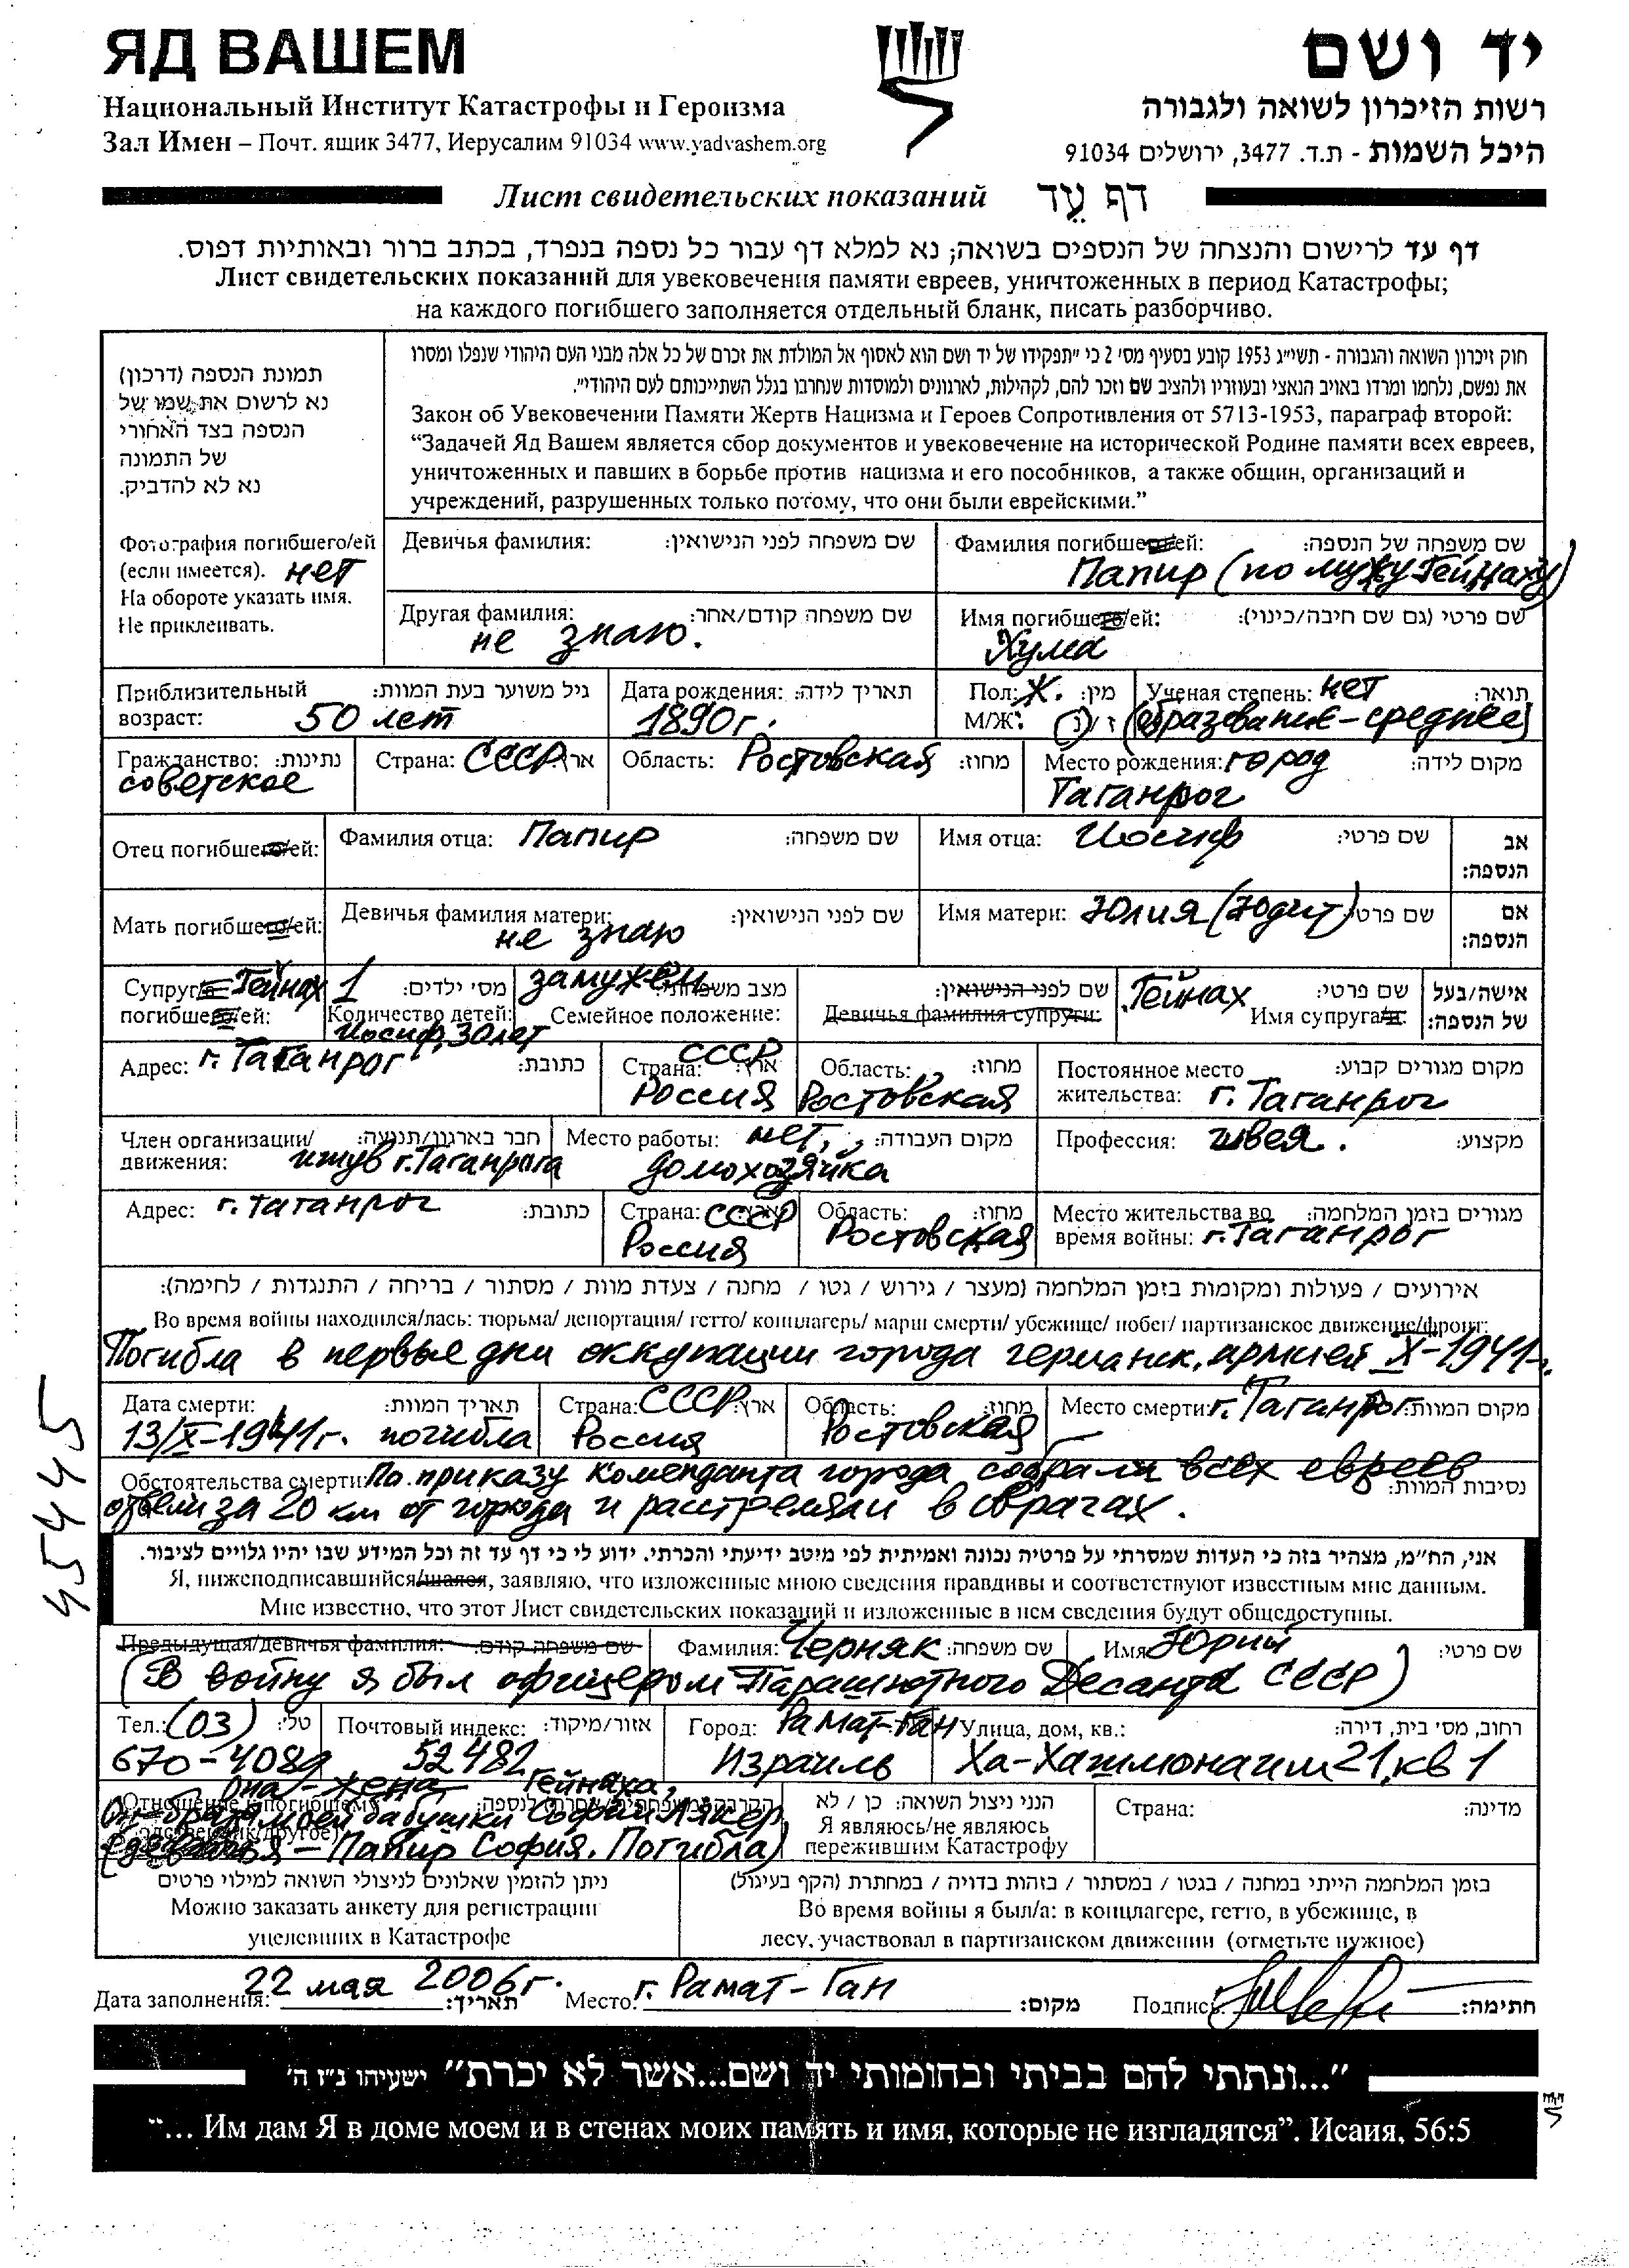 ЯД ВАШЕМ
יד ושם
Национальный Институт Катастрофы и Героизма
רשות הזיכרון לשואה ולגבורה
Зал Имен – Почт. ящик 3477, Иерусалим 91034 www.yadvashem.org
היכל השמות - ת.ד. 3477, ירושלים 91034
Лист свидетельских показаний דף עֵד
דף עד לרישום והנצחה של הנספים בשואה; נא למלא דף עבור כל נספה בנפרד, בכתב ברור ובאותיות דפוס.
Лист свидетельских показаний для увековечения памяти евреев, уничтоженных в период Катастрофы;
на каждого погибшего заполняется отдельный бланк, писать разборчиво.
תמונת הנספה (דרכון)
נא לרשום את שמו של
הנספה בצד האחורי
של התמונה
נא לא להדביק.
Фотография погибшего/ей
(если имеется). нет
На обороте указать имя.
Не приклеивать.
חוק זיכרון השואה והגבורה - תשי״ג 1953 קובע בסעיף מס׳ 2 כי ״תפקידו של יד ושם הוא לאסוף אל המולדת את זכרם של כל אלה מבני העם היהודי שנפלו ומסרו
את נפשם, נלחמו ומרדו באויב הנאצי ובעוזריו ולהציב שם וזכר להם, לקהילות, לארגונים ולמוסדות שנחרבו בגלל השתייכותם לעם היהודי״.
Закон об Увековечении Памяти Жертв Нацизма и Героев Сопротивления от 5713-1953, параграф второй:
“Задачей Яд Вашем является сбор документов и увековечение на исторической Родине памяти всех евреев,
уничтоженных и павших в борьбе против нацизма и его пособников, а также общин, организаций и
учреждений, разрушенных только потому, что они были еврейскими.”
Девичья фамилия: שם משפחה לפני הנישואין:
Фамилия погибшего/ей: שם משפחה של הנספה:
Папир (по мужу Гейнаху)
Другая фамилия: שם משפחה קודם/אחר:
не знаю.
Имя погибшего/ей: שם פרטי (גם שם חיבה/כינוי):
Хума
Приблизительный גיל משוער בעת המוות:
возраст: 50 лет
Дата рождения: תאריך לידה:
1890г.
Пол: Ж. מין:
М/Ж: ז / נ
Ученая степень: нет תואר:
(образование – среднее)
Гражданство: נתינות:
советское
Страна: СССР ארץ:
Область: Ростовская מחוז:
Место рождения: город מקום לידה:
Таганрог
Отец погибшего/ей: Фамилия отца: Папир שם משפחה: Имя отца: Иосиф שם פרטי: אב
הנספה:
Мать погибшего/ей: Девичья фамилия матери: שם לפני הנישואין: Имя матери: Юлия (Юдит) שם פרטי: אם
не знаю הנספה:
Супруг/а Гейнах
погибшего/ей:
1 מס׳ ילדים:
Количество детей:
Иосиф, 30 лет
замужем
מצב משפחתי:
Семейное положение:
שם לפני הנישואין:
Девичья фамилия супруги:
Гейнах שם פרטי:
Имя супруга/и:
אישה/בעל
של הנספה:
Адрес: г. Таганрог כתובת:
СССР
Страна: ארץ:
Россия
Область: מחוז:
Ростовская
Постоянное место מקום מגורים קבוע:
жительства: г. Таганрог
Член организации/ חבר בארגון/תנועה:
движения: ишув г. Таганрога
Место работы: нет, מקום העבודה:
домохозяйка
Профессия: швея. מקצוע:
Адрес: г. Таганрог כתובת:
Страна: СССР ארץ:
Россия
Область: מחוז:
Ростовская
Место жительства во מגורים בזמן המלחמה:
время войны: г. Таганрог
אירועים / פעולות ומקומות בזמן המלחמה (מעצר / גירוש / גטו / מחנה / צעדת מוות / מסתור / בריחה / התנגדות / לחימה):
Во время войны находился/лась: тюрьма/ депортация/ гетто/ концлагерь/ марш смерти/ убежище/ побег/ партизанское движение/фронт:
Погибла в первые дни оккупации города германск. армией X-1941г.
Дата смерти: תאריך המוות:
13/X-1941г. погибла
Страна: СССР ארץ:
Россия
Область: מחוז:
Ростовская
Место смерти: г. Таганрог מקום המוות:
Обстоятельства смерти: По приказу коменданта города собрали всех евреев נסיבות המוות:
отвели за 20 км от города и расстреляли в оврагах.
45445
אני, הח״מ, מצהיר בזה כי העדות שמסרתי על פרטיה נכונה ואמיתית לפי מיטב ידיעתי והכרתי. ידוע לי כי דף עד זה וכל המידע שבו יהיו גלויים לציבור.
Я, нижеподписавшийся/шаяся, заявляю, что изложенные мною сведения правдивы и соответствуют известным мне данным.
Мне известно, что этот Лист свидетельских показаний и изложенные в нем сведения будут общедоступны.
Предыдущая/девичья фамилия: שם משפחה קודם: Фамилия: Черняк שם משפחה: Имя Юрий שם פרטי:
(В войну я был офицером Парашютного Десанта СССР)
Тел.: (03) טל׳:
670-4089
Почтовый индекс: אזור/מיקוד:
52482
Город: Рамат-Ган
Израиль
Улица, дом, кв.: רחוב, מס׳ בית, דירה:
Ха-Хашмонаим 21, кв 1
Она – жена Гейнаха,
Отношение к погибшему
Он – брат моей бабушки Софии Лякер,
(девичья – Папир София. Погибла)
הנני ניצול השואה: כן / לא
Я являюсь/не являюсь
пережившим Катастрофу
Страна: מדינה:
ניתן להזמין שאלונים לניצולי השואה למילוי פרטים
Можно заказать анкету для регистрации
уцелевших в Катастрофе
בזמן המלחמה הייתי במחנה / בגטו / במסתור / בזהות בדויה / במחתרת (הקף בעיגול)
Во время войны я был/а: в концлагере, гетто, в убежище, в
лесу, участвовал в партизанском движении (отметьте нужное)
Дата заполнения: 22 мая 2006г. תאריך: Место: г. Рамат-Ган מקום: Подпись: חתימה:
״...ונתתי להם בביתי ובחומותי יד ושם...אשר לא יכרת״ ישעיהו נ״ו ה׳
“... Им дам Я в доме моем и в стенах моих память и имя, которые не изгладятся”. Исаия, 56:5